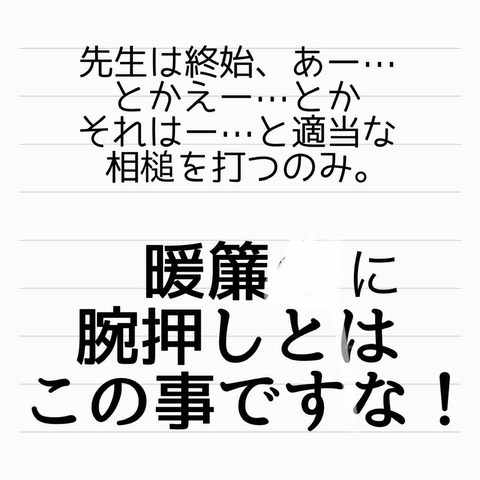 先生は終始、あー…
とかえー…とか
それはー…と適当な
相槌を打つのみ。
暖簾に
腕押しとは
この事ですな！